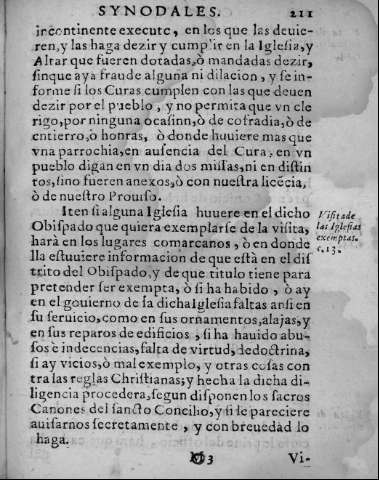 SYNODALES. 211
incontinente execute, en los que las deuie-
ren, y las haga dezir y cumplir en la Iglesia, y
Altar que fueren dotadas, ò mandadas dezir,
sinque aya fraude alguna ni dilacion, y se in-
forme si los Curas cumplen con las que deuen
dezir por el pueblo, y no permita que vn cle
rigo, por ninguna ocasinn, ò de cofradia, ò de
entierro, ò honras, ò donde huuiere mas que
vna parrochia, en ausencia del Cura, en vn
pueblo digan en vn dia dos missas, ni en distin
tos, sino fueren anexos, ò con nuestra licẽcia,
ò de nuestro Prouiso.
Iten si alguna Iglesia huuere en el dicho
Obispado que quiera exemplarse de la visita,
harà en los lugares comarcanos, ò en donde
lla estuuiere informacion de que està en el dis
trito del Obispado, y de que titulo tiene para
pretender ser exempta, ò si ha habido, ò ay
en el gouierno de la dicha Iglesia faltas ansi en
su seruicio, como en sus ornamentos, alajas, y
en sus reparos de edificios, si ha hauido abu-
sos è indecencias, falta de virtud, de doctrina,
si ay vicios, ò mal exemplo, y otras cosas con
tra las reglas Christianas, y hecha la dicha di-
ligencia procedera, segun disponen los sacros
Canones del sancto Concilio, y si le pareciere
auisarnos secretamente, y con breuedad lo
haga.
Visitade
las Iglesias
exemptas.
c. 13.
3 Vi-